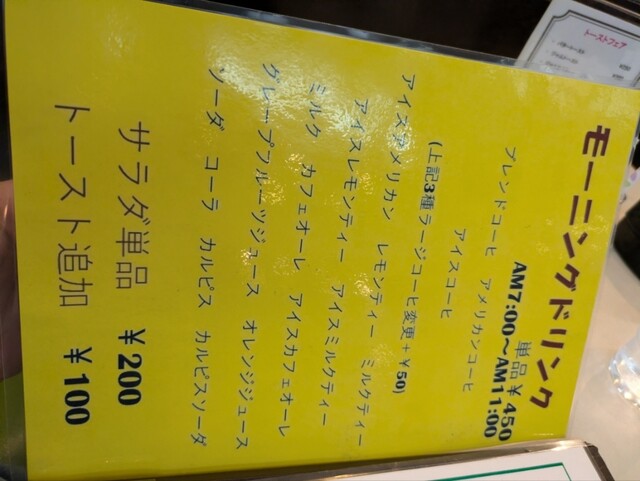 モーニングドリンク
単品￥450
AM7:00～AM11:00
ブレンドコーヒ アメリカンコーヒ
アイスコーヒ
(上記3種ラージコーヒ変更＋￥50)
アイスアメリカン レモンティー ミルクティー
アイスレモンティー アイスミルクティー
ミルク カフェオーレ アイスカフェオーレ
グレープフルーツジュース オレンジジュース
ソーダ コーラ カルピス カルピスソーダ
サラダ単品 ￥200
トースト追加 ￥100
トーストフェア